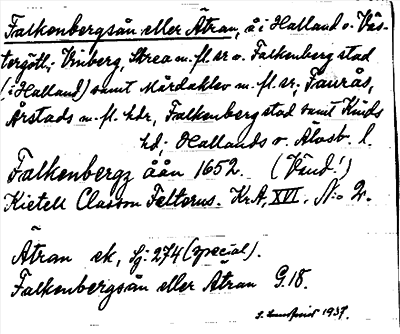 Falkenbergsån eller Ätran, å i Halland o. Väs-
tergötl.; Vinberg, Skrea m.fl. sr o. Falkenberg stad
(i Halland) samt Mårdaklev m.fl. sr; Faurås,
Årstads m.fl. hdr, Falkenberg stad samt Kinds
hd; Hallands o. Älvsb. l.
Falkenbergz åån 1652. (Vänd!)
Kietell Classon Felterus. KrA, XVI. N:o 2.
Ätran ek, bj: 274 (special).
Falkenbergsån eller Ätran G.18.
1937.